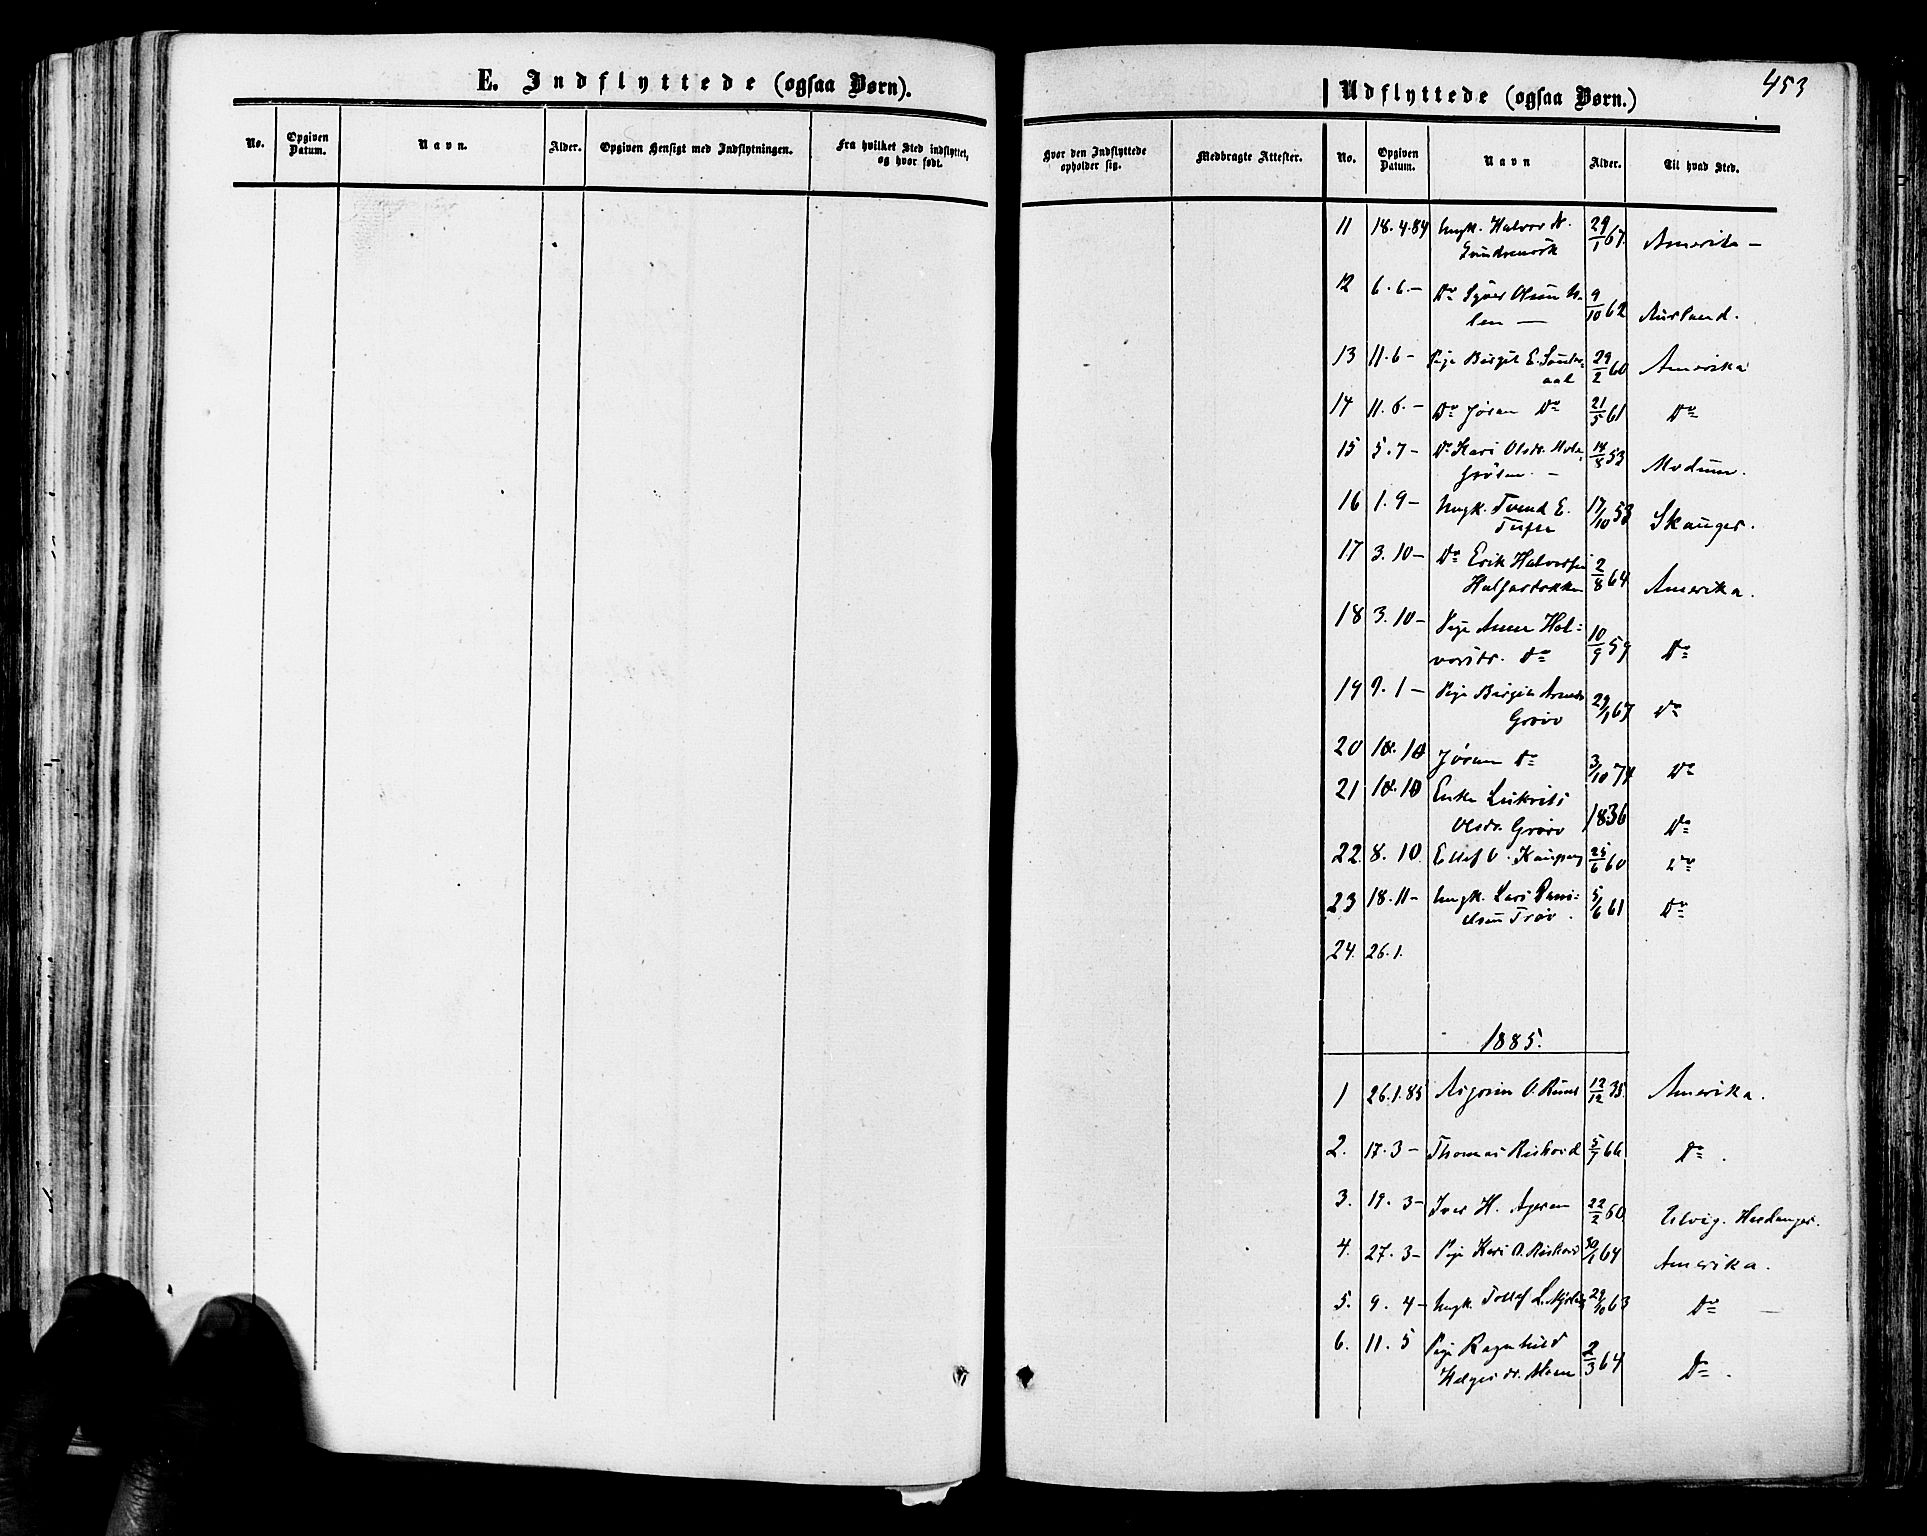 E. Indflyttede (ogsaa Børn).
No.
Opgiven Datum.
Navn.
Alder.
Opgiven Hensigt med Indflytningen.
Fra hvilket Sted indflyttet, og hvor født.
453
Udflyttede (ogsaa Børn.)
Hvor den Indflyttede opholder sig.
Medbragte Attester.
No.
Opgiven Datum.
Navn
Alder.
Til hvad Sted.
11 18.4.84 Ungk. Halvor N. 29/1 67. Amerika –
12 6.6.– Do Syver Olsen 9/10 62 Aurland.
len —
13 11.6– Pige Birgit E. Sundre= 29/2 60 Amerika
aal
14 11.6.– Do Jøran Do 21/5 61 Do
15 5.7– Do Kari Olsdr. 14/8 53 Modum.
16 1.9– Ungk. Tvend E. 17/10 53 Skauger.
Tufte
17 3.10– Do Erik Halvorsen 2/8 64 Amerika.
18 3.10– Pige Anne Hal= 10/9 59 Do
vorsdr. Do
19 9.1– Pige Birgit 29/1 67 Do
Grøv
20 10.10 Jøran Do 3/10 74 Do
21 10.10 Enke
Olsdr. Grøv 1836 Do
22. 8.10. Ellef O. 25/6 60 Do
23 18.11– Ungk. Lars 5/6 61 Do
24. 26.1.
1885.
1 26.1.85 Asgrim O. 12/12 35. Amerika.
2. 17.3– Thomas 5/7 66 Do.
3. 19.3– Iver H. 22/2 60 Ulvig. Hardanger.
4. 27.3– Pige Kari O. 30/1 64 Amerika.
5. 9.4– Ungk. Tollef L. 29/10 63 Do –
6. 11.5 Pige Ragnhild 2/3 64 Do.
Helgesdr. Moen